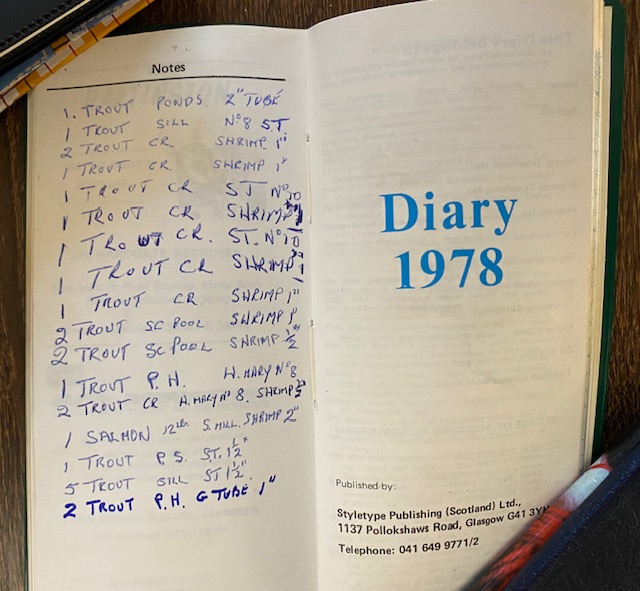 Notes
1. TROUT PONDS. 2" TUBE
1 TROUT SILL Nº8 ST
2 TROUT CR. SHRIMP 1"
1 TROUT CR. SHRIMP 1"
1 TROUT CR ST Nº10
1 TROUT CR SHRIMP
1 TROUT CR. ST. Nº10
1 TROUT CR SHRIMP
1 TROUT CR SHRIMP 1"
2 TROUT SC POOL SHRIMP 1"
2 TROUT SC POOL SHRIMP ½"
1 TROUT P.H. H. MARY Nº8
2 TROUT CR H. MARY Nº 8. SHRIMP
1 SALMON 12lb. S. MILL. SHRIMP 2"
1 TROUT P.S. ST. 1½"
5 TROUT SILL ST 1½"
2 TROUT P.H. G TUBE 1"
Diary
1978
Published by:
Styletype Publishing (Scotland) Ltd.,
1137 Pollokshaws Road, Glasgow G41 3YH
Telephone: 041 649 9771/2